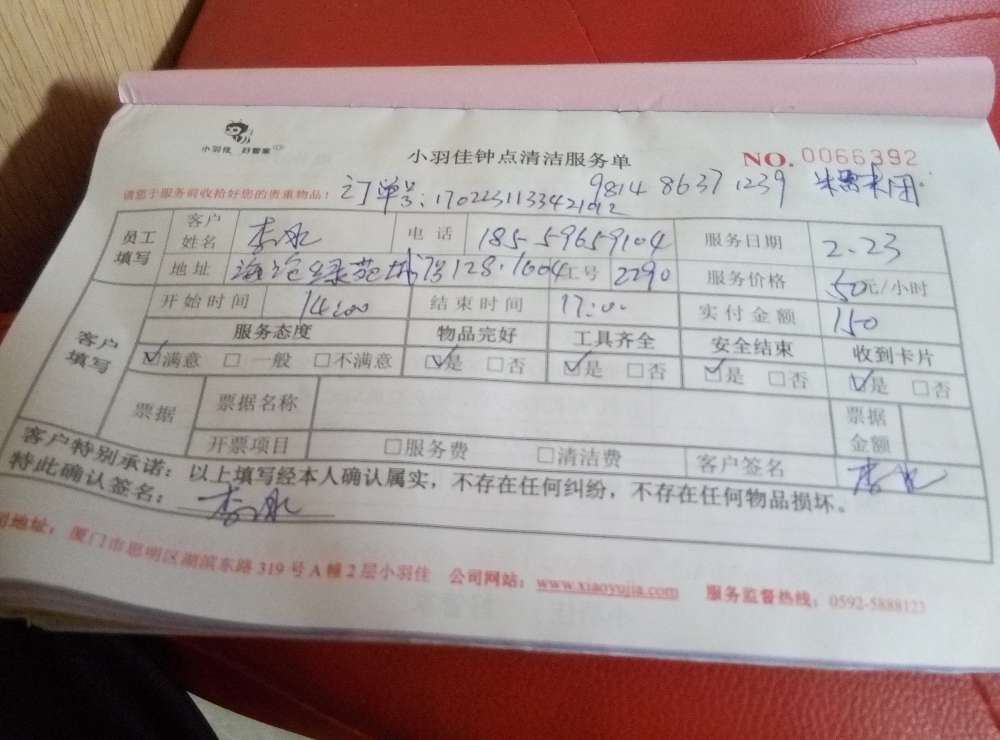 小羽佳 好管家
小羽佳钟点清洁服务单
NO. 0066392
请您于服务前收拾好您的贵重物品！ 订单号:170223113342192
9814 8637 1239
员工填写 客户姓名 李冰 电话 185-59659104 服务日期 2.23
地址 海沧绿苑 128.1604 工号 2290 服务价格 50元/小时
客户填写 开始时间 14:00 结束时间 17:00 实付金额 150
服务态度 物品完好 工具齐全 安全结束 收到卡片
☑满意 □一般 □不满意 ☑是 □否 ☑是 □否 ☑是 □否 ☑是 □否
票据 票据名称 票据金额
开票项目 □服务费 □清洁费 客户签名 李冰
客户特别承诺：以上填写经本人确认属实，不存在任何纠纷，不存在任何物品损坏。
特此确认签名： 李冰
司地址：厦门市思明区湖滨东路319号A幢2层小羽佳 公司网站：www.xiaoyujia.com 服务监督热线：0592-5888123